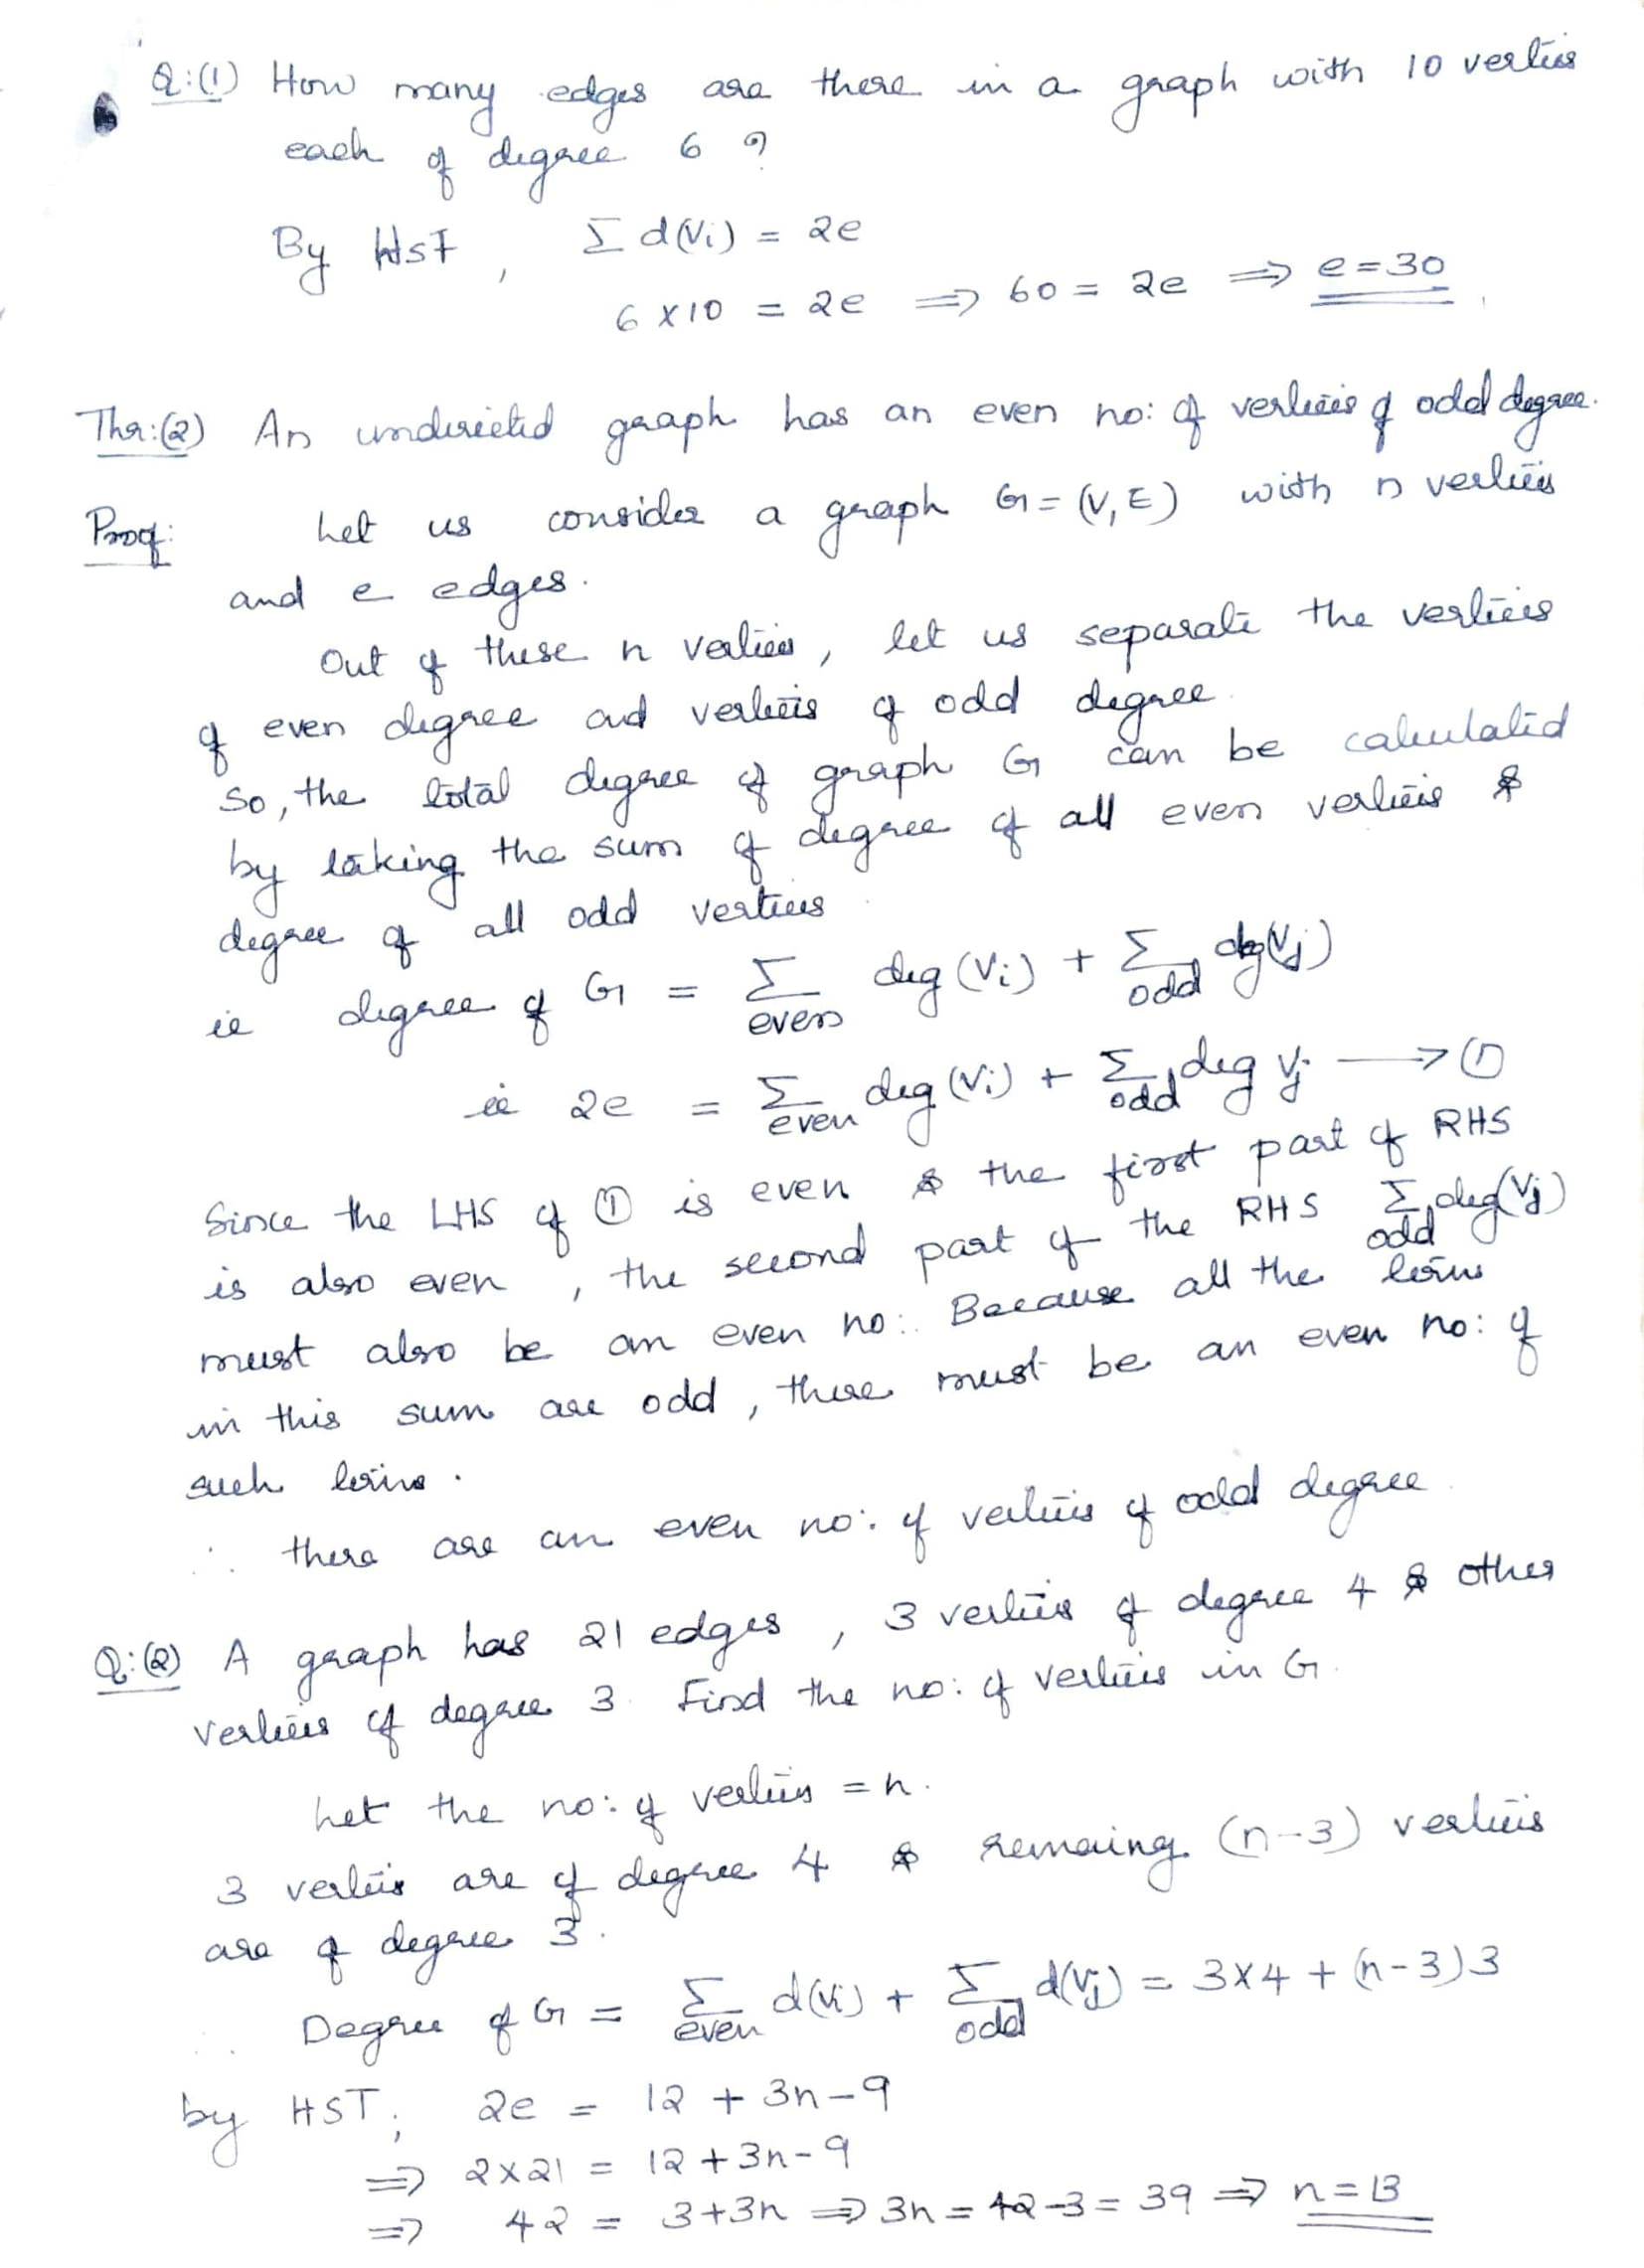 Q:(1) How many edges are there in a graph with 10 vertices
each of degree 6 ?
By HST, Σ d(Vi) = 2e
6 x 10 = 2e ⇒ 60 = 2e ⇒ e = 30
Thr:(2) An undirected graph has an even no: of vertices of odd degree.
Proof: Let us consider a graph G = (V, E) with n vertices
and e edges.
Out of these n vertices, let us separate the vertices
of even degree and vertices of odd degree.
So, the total degree of graph G can be calculated
by taking the sum of degree of all even vertices &
degree of all odd vertices
ie degree of G = Σ even deg (Vi) + Σ odd deg(Vj)
ie 2e = Σ even deg (Vi) + Σ odd deg Vj → ①
Since the LHS of ① is even & the first part of RHS
is also even, the second part of the RHS Σ odd deg(Vj)
must also be an even no:. Because all the terms
in this sum are odd, there must be an even no: of
such terms.
∴ there are an even no: of vertices of odd degree.
Q:(2) A graph has 21 edges, 3 vertices of degree 4 & other
vertices of degree 3. Find the no: of vertices in G.
Let the no: of vertices = n.
3 vertices are of degree 4 & remaing (n-3) vertices
are of degree 3.
∴ Degree of G = Σ even d(Vi) + Σ odd d(Vj) = 3x4 + (n-3)3
by HST, 2e = 12 + 3n - 9
⇒ 2x21 = 12 + 3n - 9
⇒ 42 = 3 + 3n ⇒ 3n = 42 - 3 = 39 ⇒ n = 13